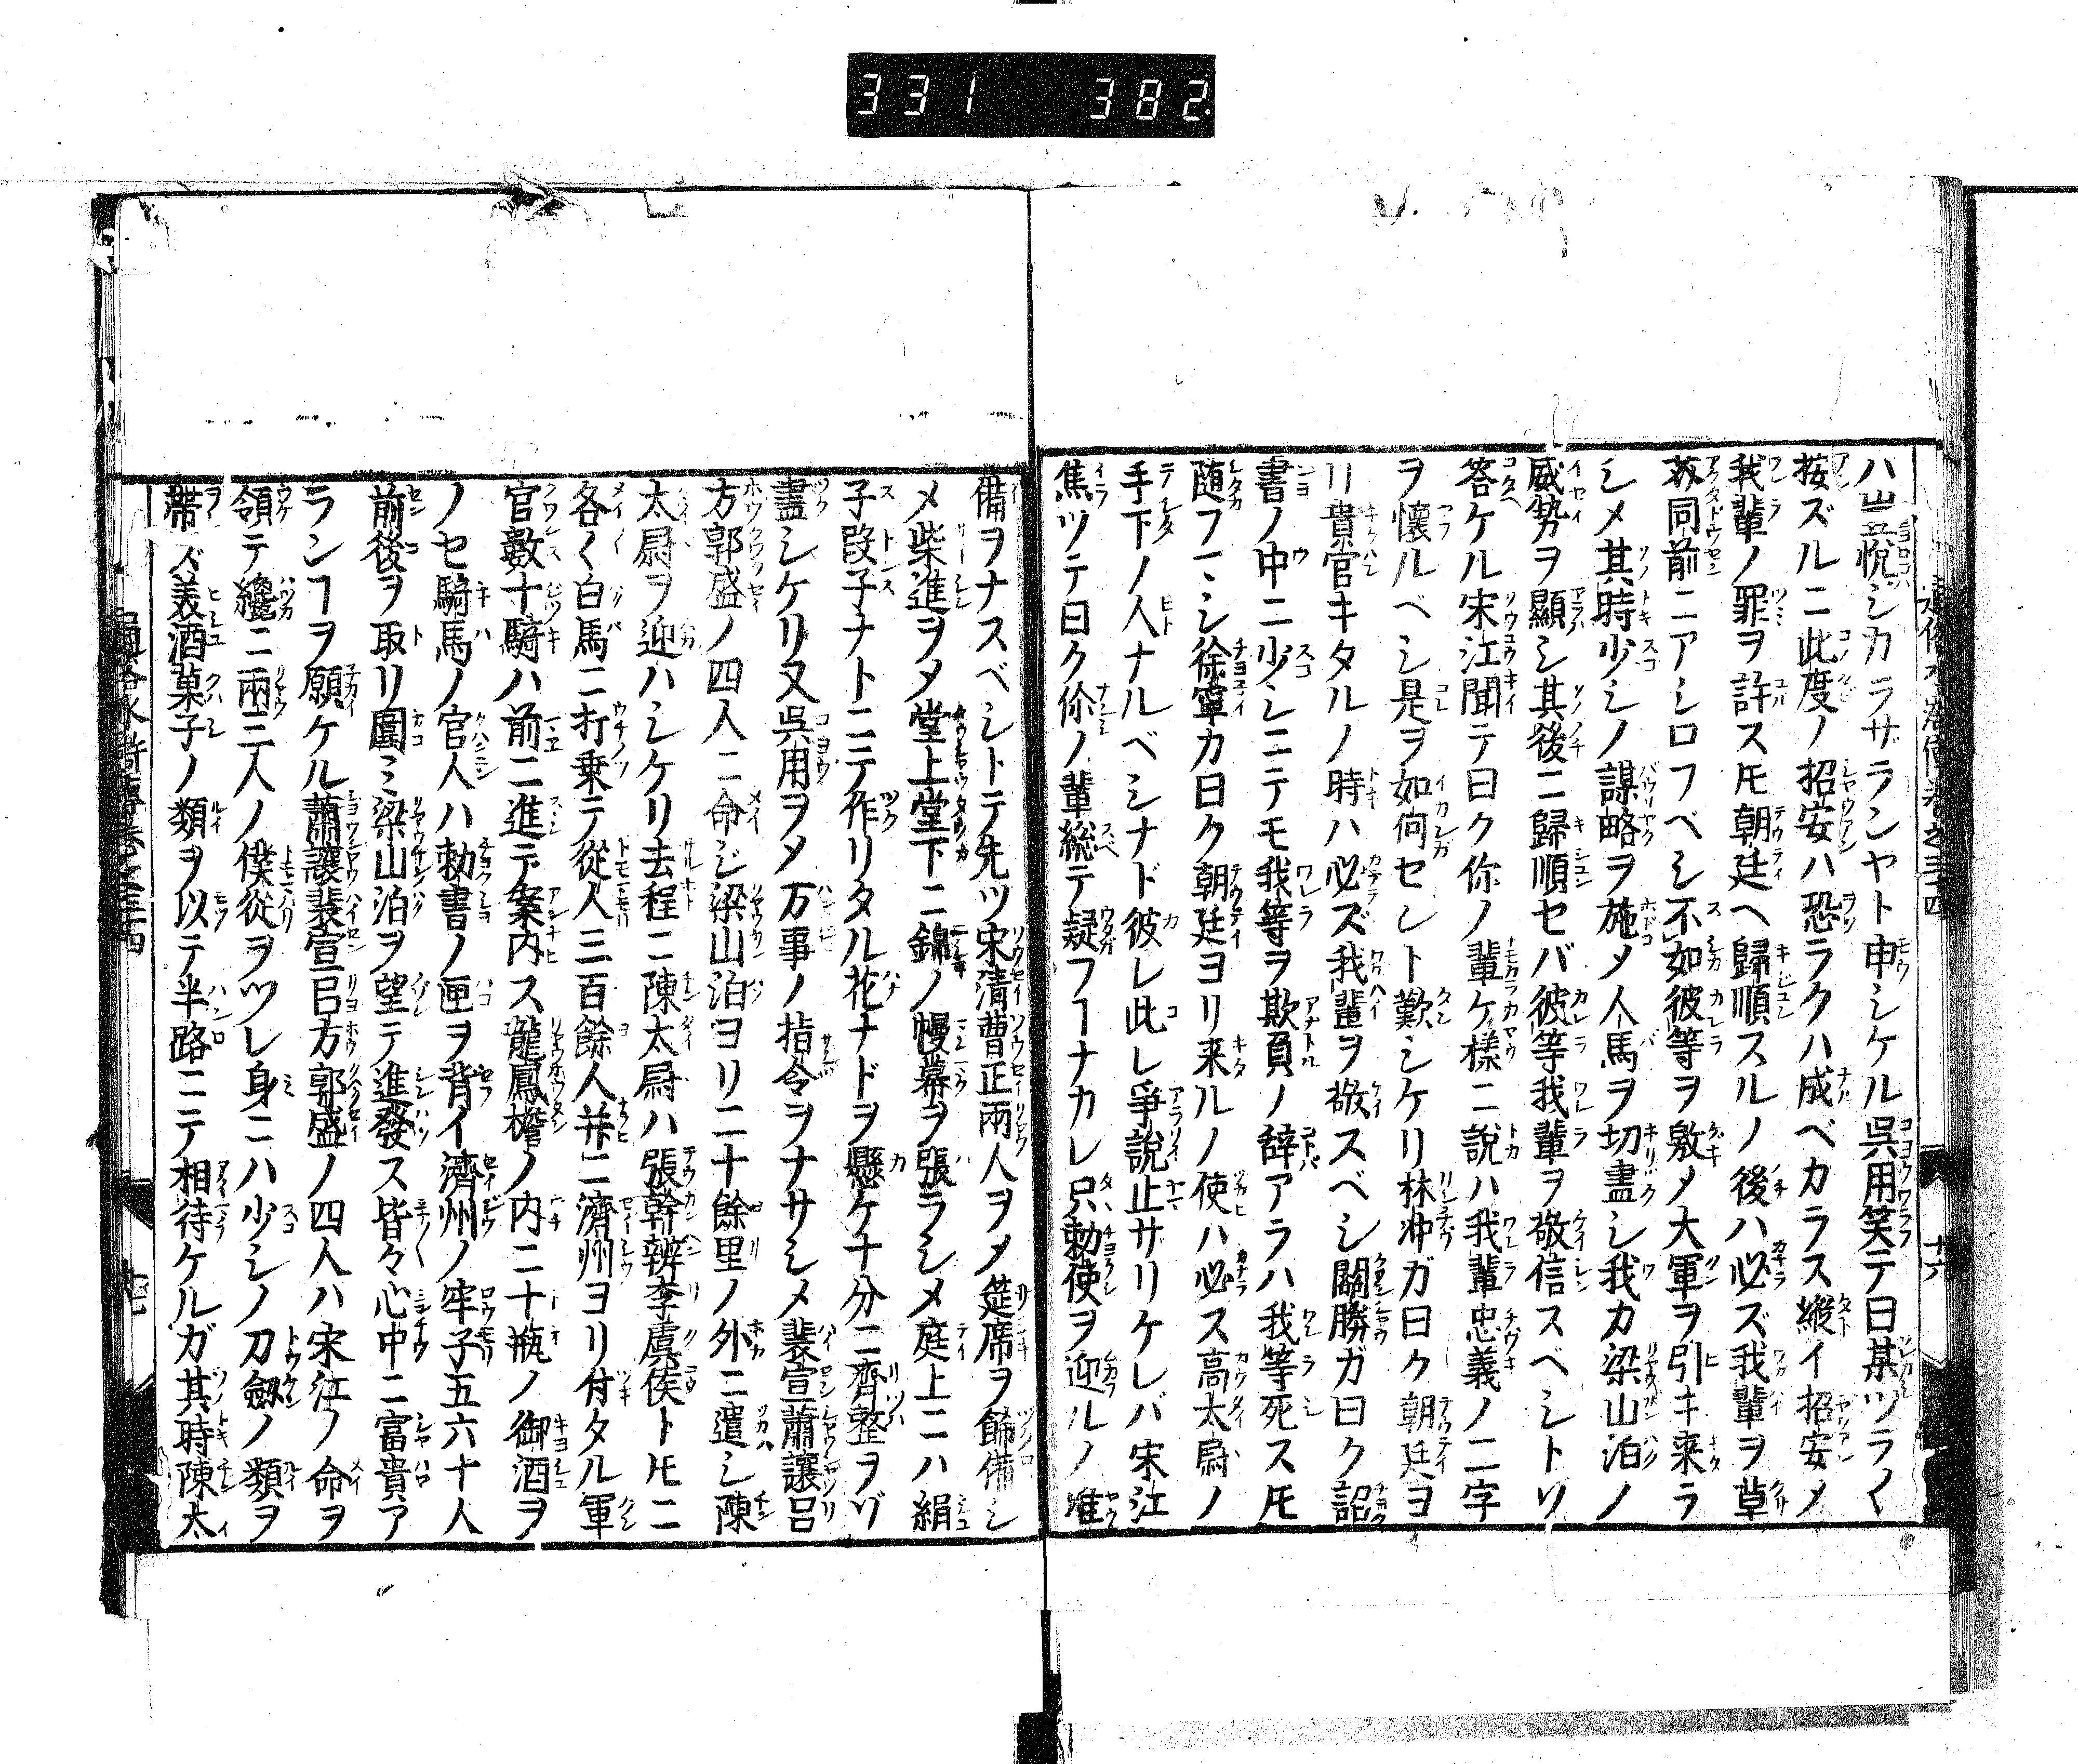 331 382
ハ豈悦シカラザランヤト申シケル呉用笑テ曰某ツラ〱
按ズルニ此度ノ招安ハ恐ラクハ成ベカラス縦イ招安メ
我輩ノ罪ヲ許ス𪜈朝廷ヘ歸順スルノ後ハ必ズ我輩ヲ草
芥同前ニアシロフベシ不如彼等ヲ敫メ大軍ヲ引キ来ラ
シメ其時少シノ謀略ヲ施メ人馬ヲ切盡シ我カ梁山泊ノ
威勢ヲ顯シ其後ニ歸順セバ彼等我輩ヲ敬信スベシトソ
答ケル宋江聞テ曰ク你ノ輩ケ様ニ説ハ我輩忠義ノ二字
ヲ懐ルベシ是ヲ如何セント歎シケリ林冲ガ曰ク朝廷ヨ
リ貴官キタルノ時ハ必ズ我輩ヲ敬スベシ關勝ガ曰ク詔
書ノ中ニ少シニテモ我等ヲ欺負ノ辞アラハ我等死ス𪜈
随フヿシ徐寧カ曰ク朝廷ヨリ来ルノ使ハ必ス高太尉ノ
手下ノ人ナルベシナド彼レ此レ爭説止サリケレバ宋江
焦ツテ曰ク你ノ輩総テ疑フヿナカレ只勅使ヲ迎ルノ准
備ヲナスベシトテ先ツ宋清曹正兩人ヲメ筵席ヲ餝備シ
メ柴進ヲメ堂上堂下ニ錦ノ幔幕ヲ張ラシメ庭上ニハ絹
子段子ナトニテ作リタル花ナドヲ懸ケ十分ニ齊整ヲゾ
盡シケリ又呉用ヲメ万事ノ指令ヲナサシメ裴宣蕭讓呂
方郭盛ノ四人ニ命ジ梁山泊ヨリ二十餘里ノ外ニ遣シ陳
太尉ヲ迎ハシケリ去程ニ陳太尉ハ張幹辨李虞侯ト𪜈ニ
各〱白馬ニ打乗テ從人三百餘人并ニ濟州ヨリ付タル軍
官數十騎ハ前ニ進テ案内ス龍鳳檐ノ内ニ十瓶ノ御酒ヲ
ノセ騎馬ノ官人ハ勅書ノ匣ヲ背イ濟州ノ牢子五六十人
前後ヲ取リ圍ミ梁山泊ヲ望テ進發ス皆々心中ニ富貴ア
ランヿヲ願ケル蕭讓裴宣呂方郭盛ノ四人ハ宋江ノ命ヲ
領テ纔ニ兩三人ノ僕從ヲツレ身ニハ少シノ刀劔ノ類ヲ
帯ズ美酒菓子ノ類ヲ以テ半路ニテ相待ケルガ其時陳太